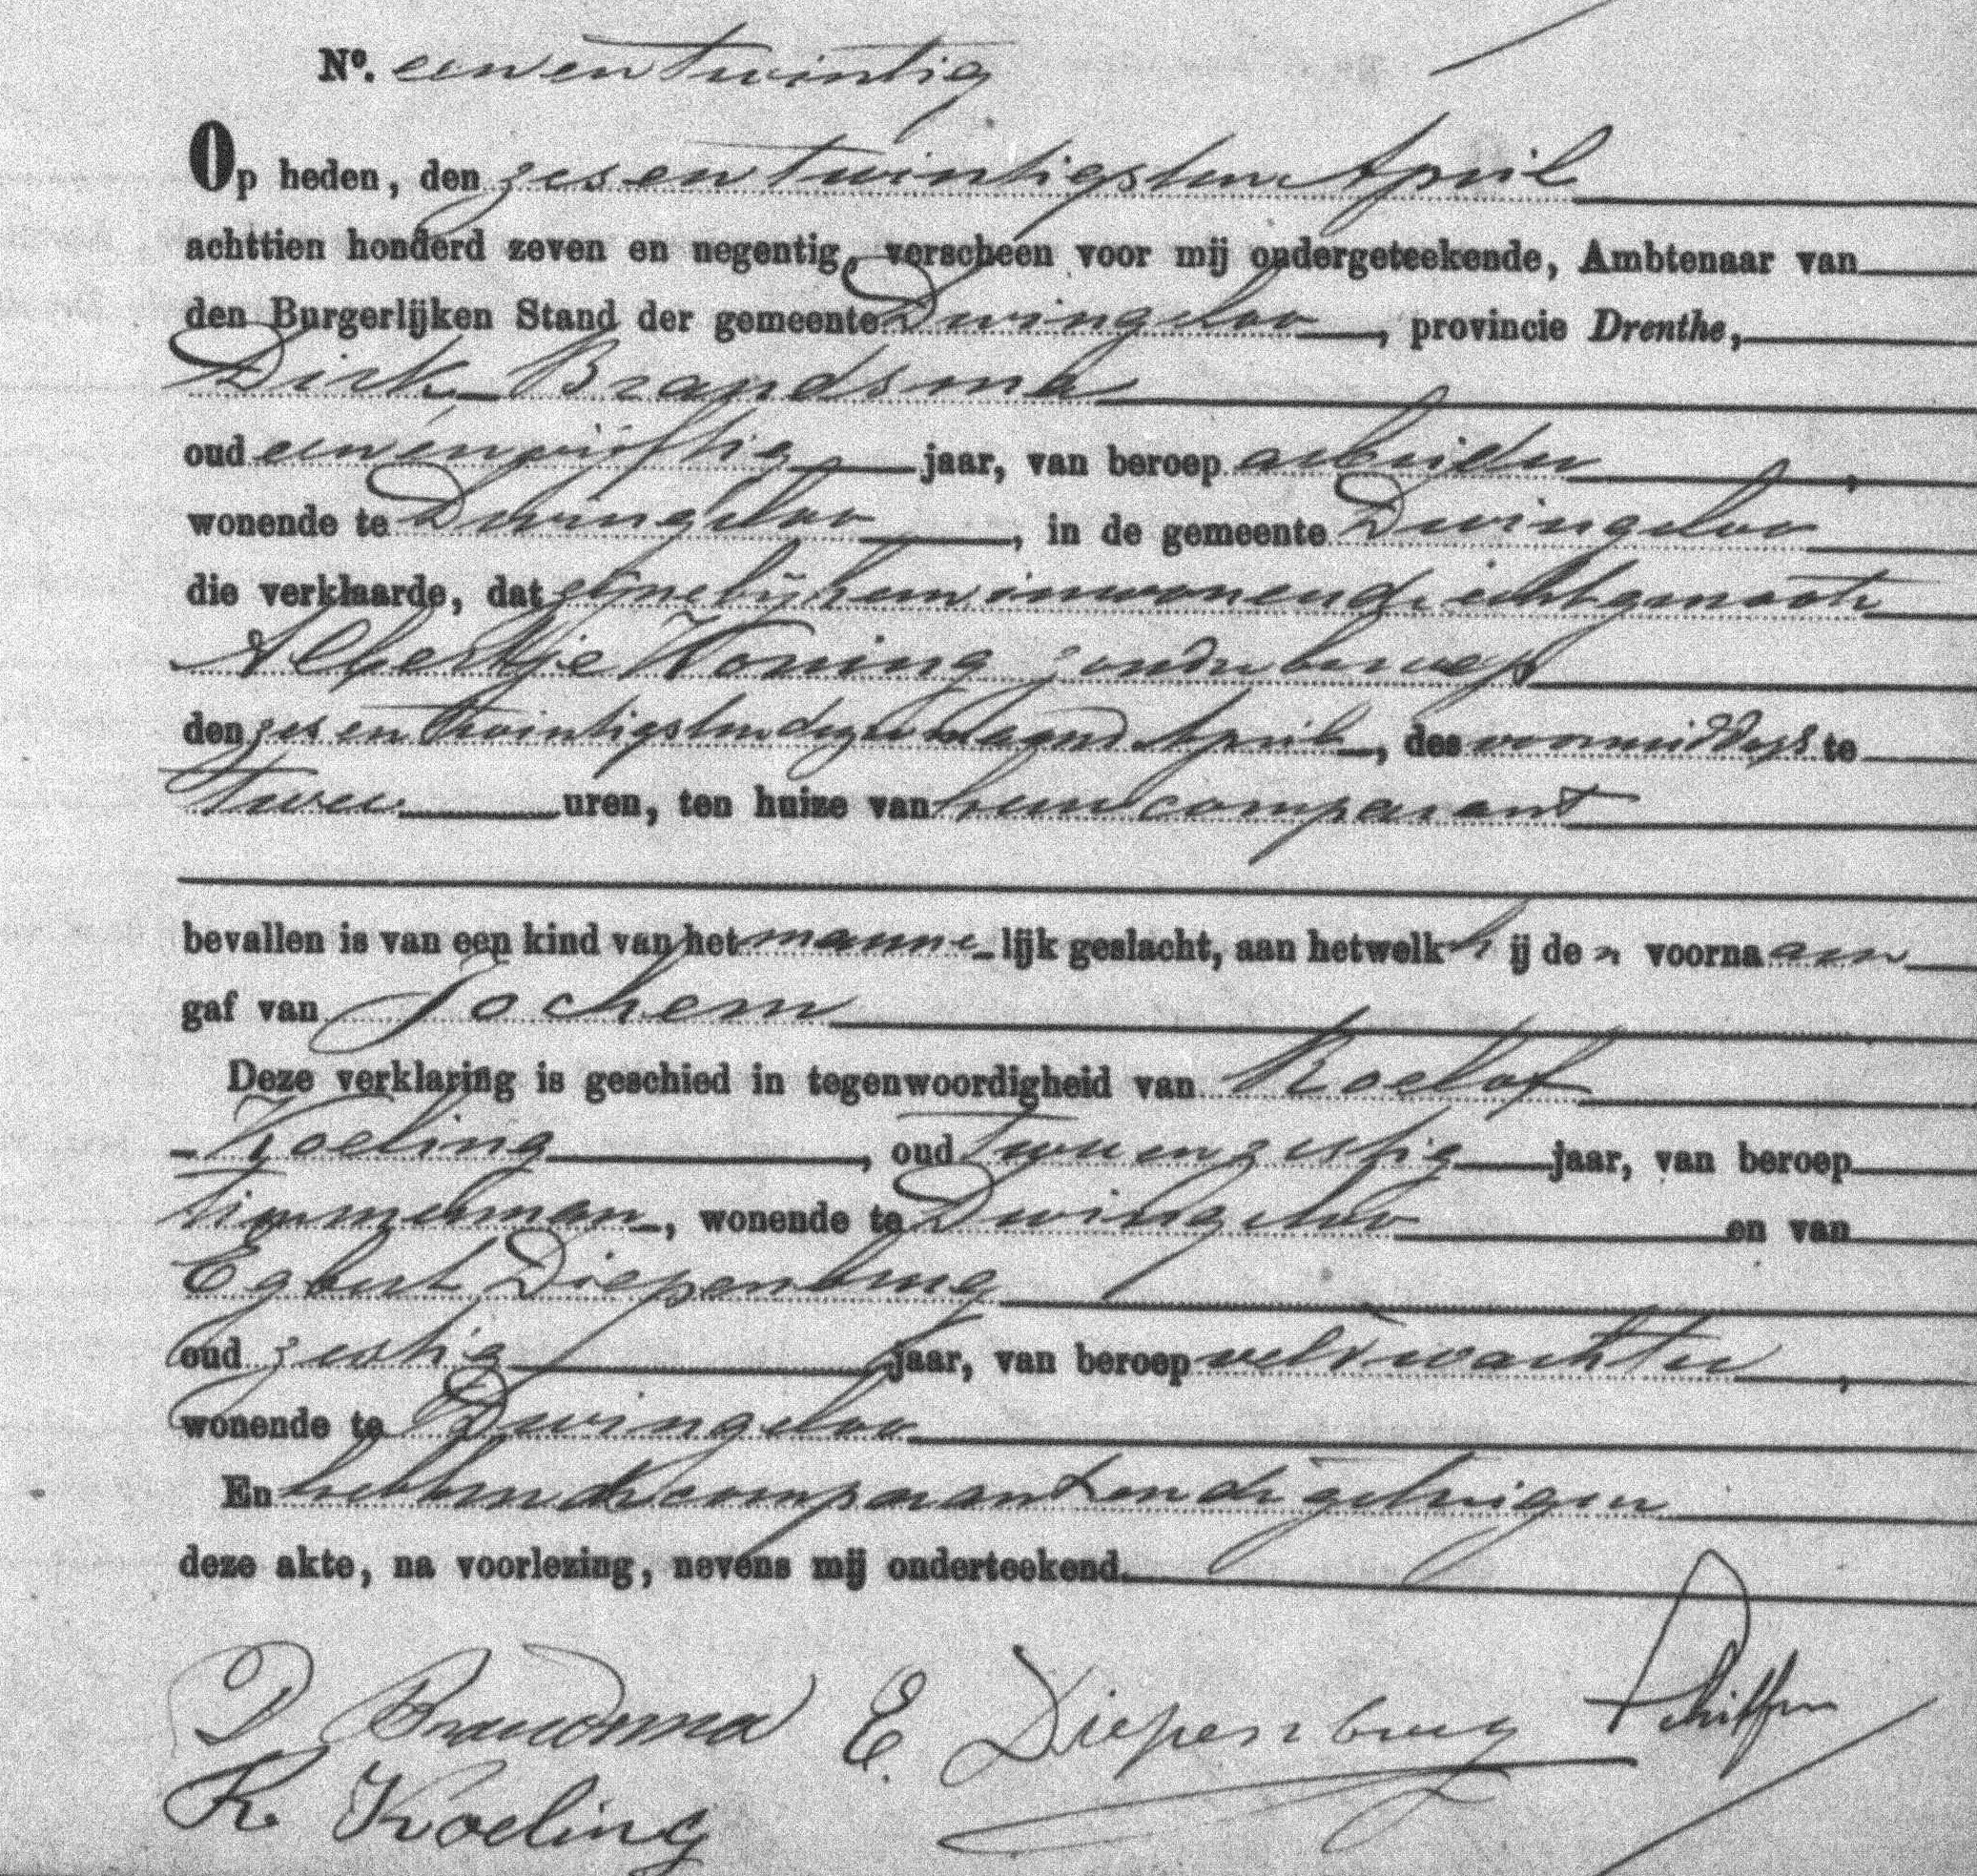 Nº. eenentwintig
Op heden, den zesentwintigsten April
achttien honderd zeven en negentig, verscheen voor mij ondergeteekende, Ambtenaar van
den Burgerlijken Stand der gemeente Dwingeloo, provincie Drenthe,
Dirk Brandsma
oud eenenvijftig jaar, van beroep arbeider,
wonende te Dwingeloo, in de gemeente Dwingeloo
die verklaarde, dat zijne bij hem inwonende echtgenoote
Albertje Koning zonder beroep
den zesentwintigsten dezer maand April, des voormiddags te
twee uren, ten huize van hem comparant
bevallen is van een kind van het mannelijk geslacht, aan hetwelk hij den voornaam
gaf van Jochem
Deze verklaring is geschied in tegenwoordigheid van Roelof
Koeling, oud tweeenzestig jaar, van beroep
timmerman, wonende te Dwingeloo en van
Egbert Diepenbrug
oud zestig jaar, van beroep veldwachter,
wonende te Dwingeloo
En hebben de comparant en de getuigen
deze akte, na voorlezing, nevens mij onderteekend.
D Brandsma E. Diepenbrug
R. Koeling